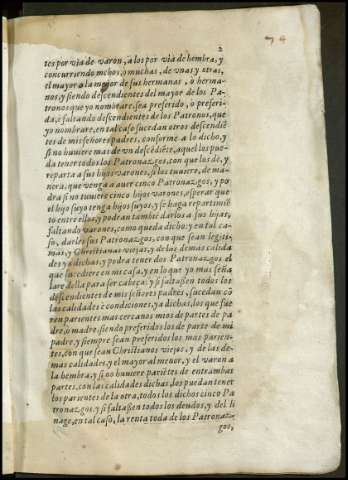 2
tes por via de varon, a los por via de hembra, y
concurriendo mchos, o muchas, de vnas y otras,
el mayor a la menor de sus hermanas, ò herma-
nos, y siendo descendientes del mayor de los Pa-
tronos que yo nombrare, sea preferido, o preferi-
da, è faltando descendientes de los Patronos, que
yo nombrare, en tal caso sucedan otros descendiē-
tes de mis señores padres, conforme a lo dicho, y
si no huuiere mas de vn descēdiēte, aquel los pue-
da tener todos los Patronazgos, con que los dè, y
reparta a sus hijos varones, si los tuuiere, de ma-
nera, que venga a auer cinco Patronazgos, y po-
dra si no tuuiere cinco hijos varones, esperar que
el hijo suyo tenga hijos suyos, y se haga repartimiē-
to entre ellos, y podran tambiē darlos a sus hijas,
faltando varones, como queda dicho: y en tal ca-
so, darles sus Patronazgos, con que sean legiti-
mas, y Christianas viejas, y de las demas calida-
des ya dichas, y podra tener dos Patronazgos el
que sucediere en mi casa, y en lo que yo mas seña
lare della para ser cabeça: y si faltassen todos los
descendientes de mis señores padres, sucedan cō
las calidades è condiciones, ya dichas, los que fue
ren parientes mas cercanos mios de partes de pa
dre, o madre, siendo preferidos los de parte de mi
padre, y siempre sean preferidos los mas parien-
tes, con que sean Christianos viejos, y de las de-
mas calidades, y el mayor al menor, y el varon a
la hembra, y si no huuiere pariētes de entrambas
partes, con las calidades dichas, los puedan tener
los parientes de la otra, todos los dichos cinco Pa
tronazgos, y si faltassen todos los deudos, y del li
nage, en tal caso, la renta toda de los Patronaz-
gos,